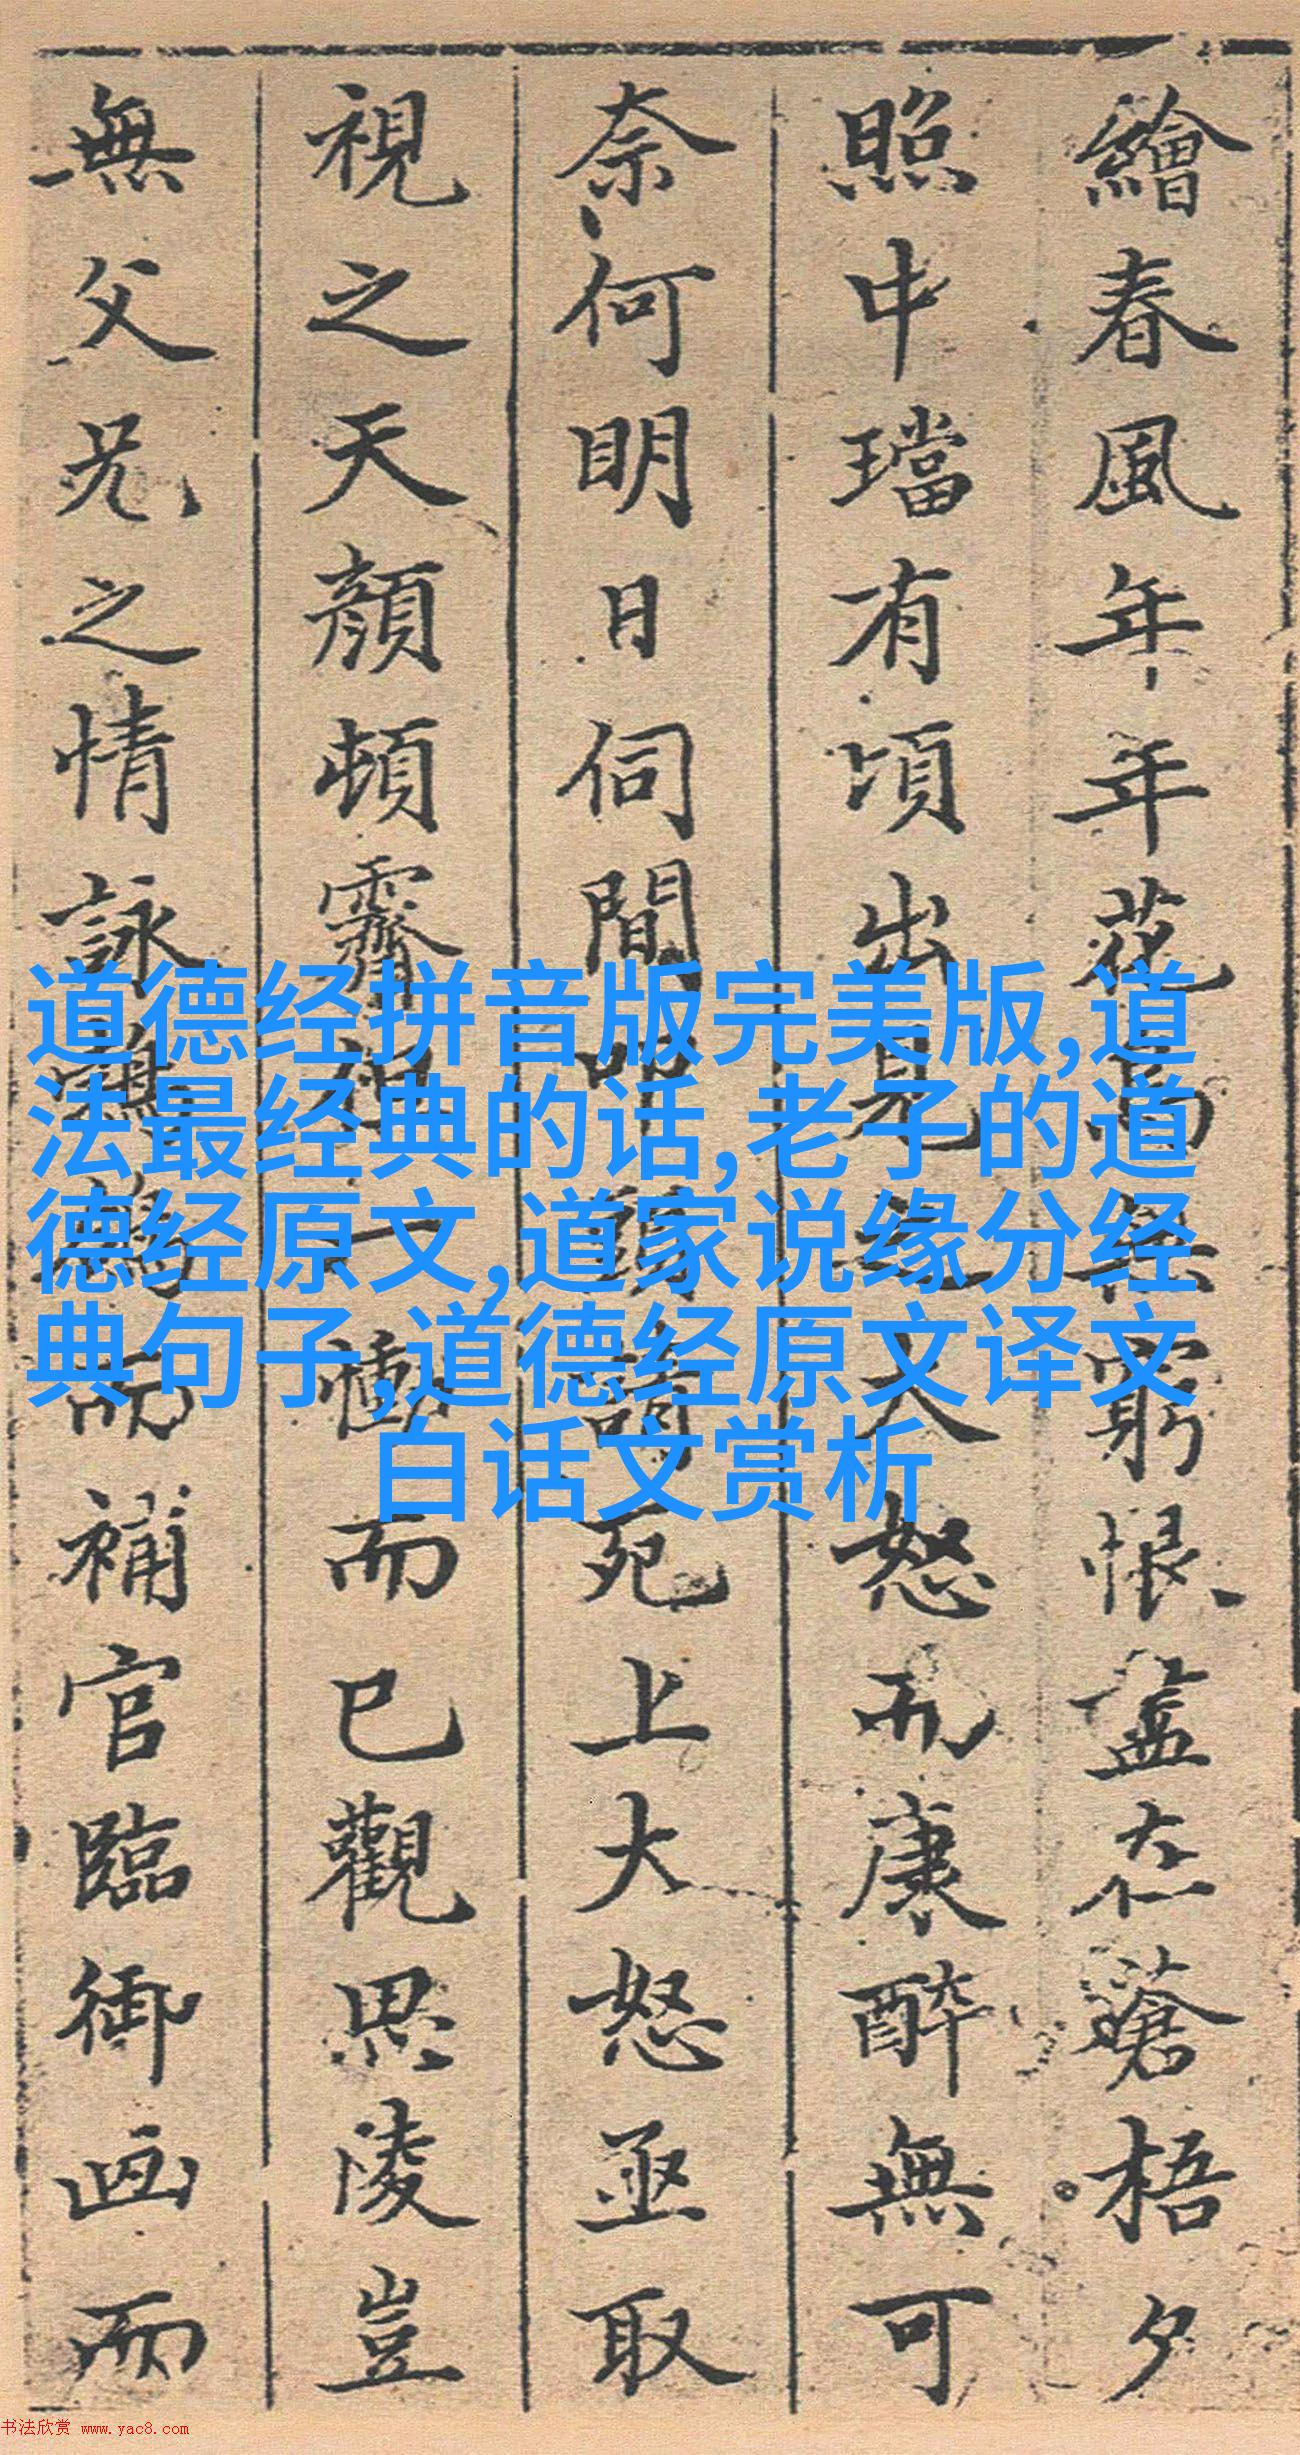 繪春風年年花無窮恨盡在蒼梧夕
照中璫有頃出見大怒而康醉無可
奈何明日伺間叩頭請死上大怒亟取
視之天顏頓霽但一慟而已觀思陵豈
無父兄之情詠而補官臨御画而
道德经拼音版完美版,道
法最经典的话,老子的道
德经原文,道家说缘分经
典句子,道德经原文译文
白话文赏析
书法欣赏 www.yac8.com